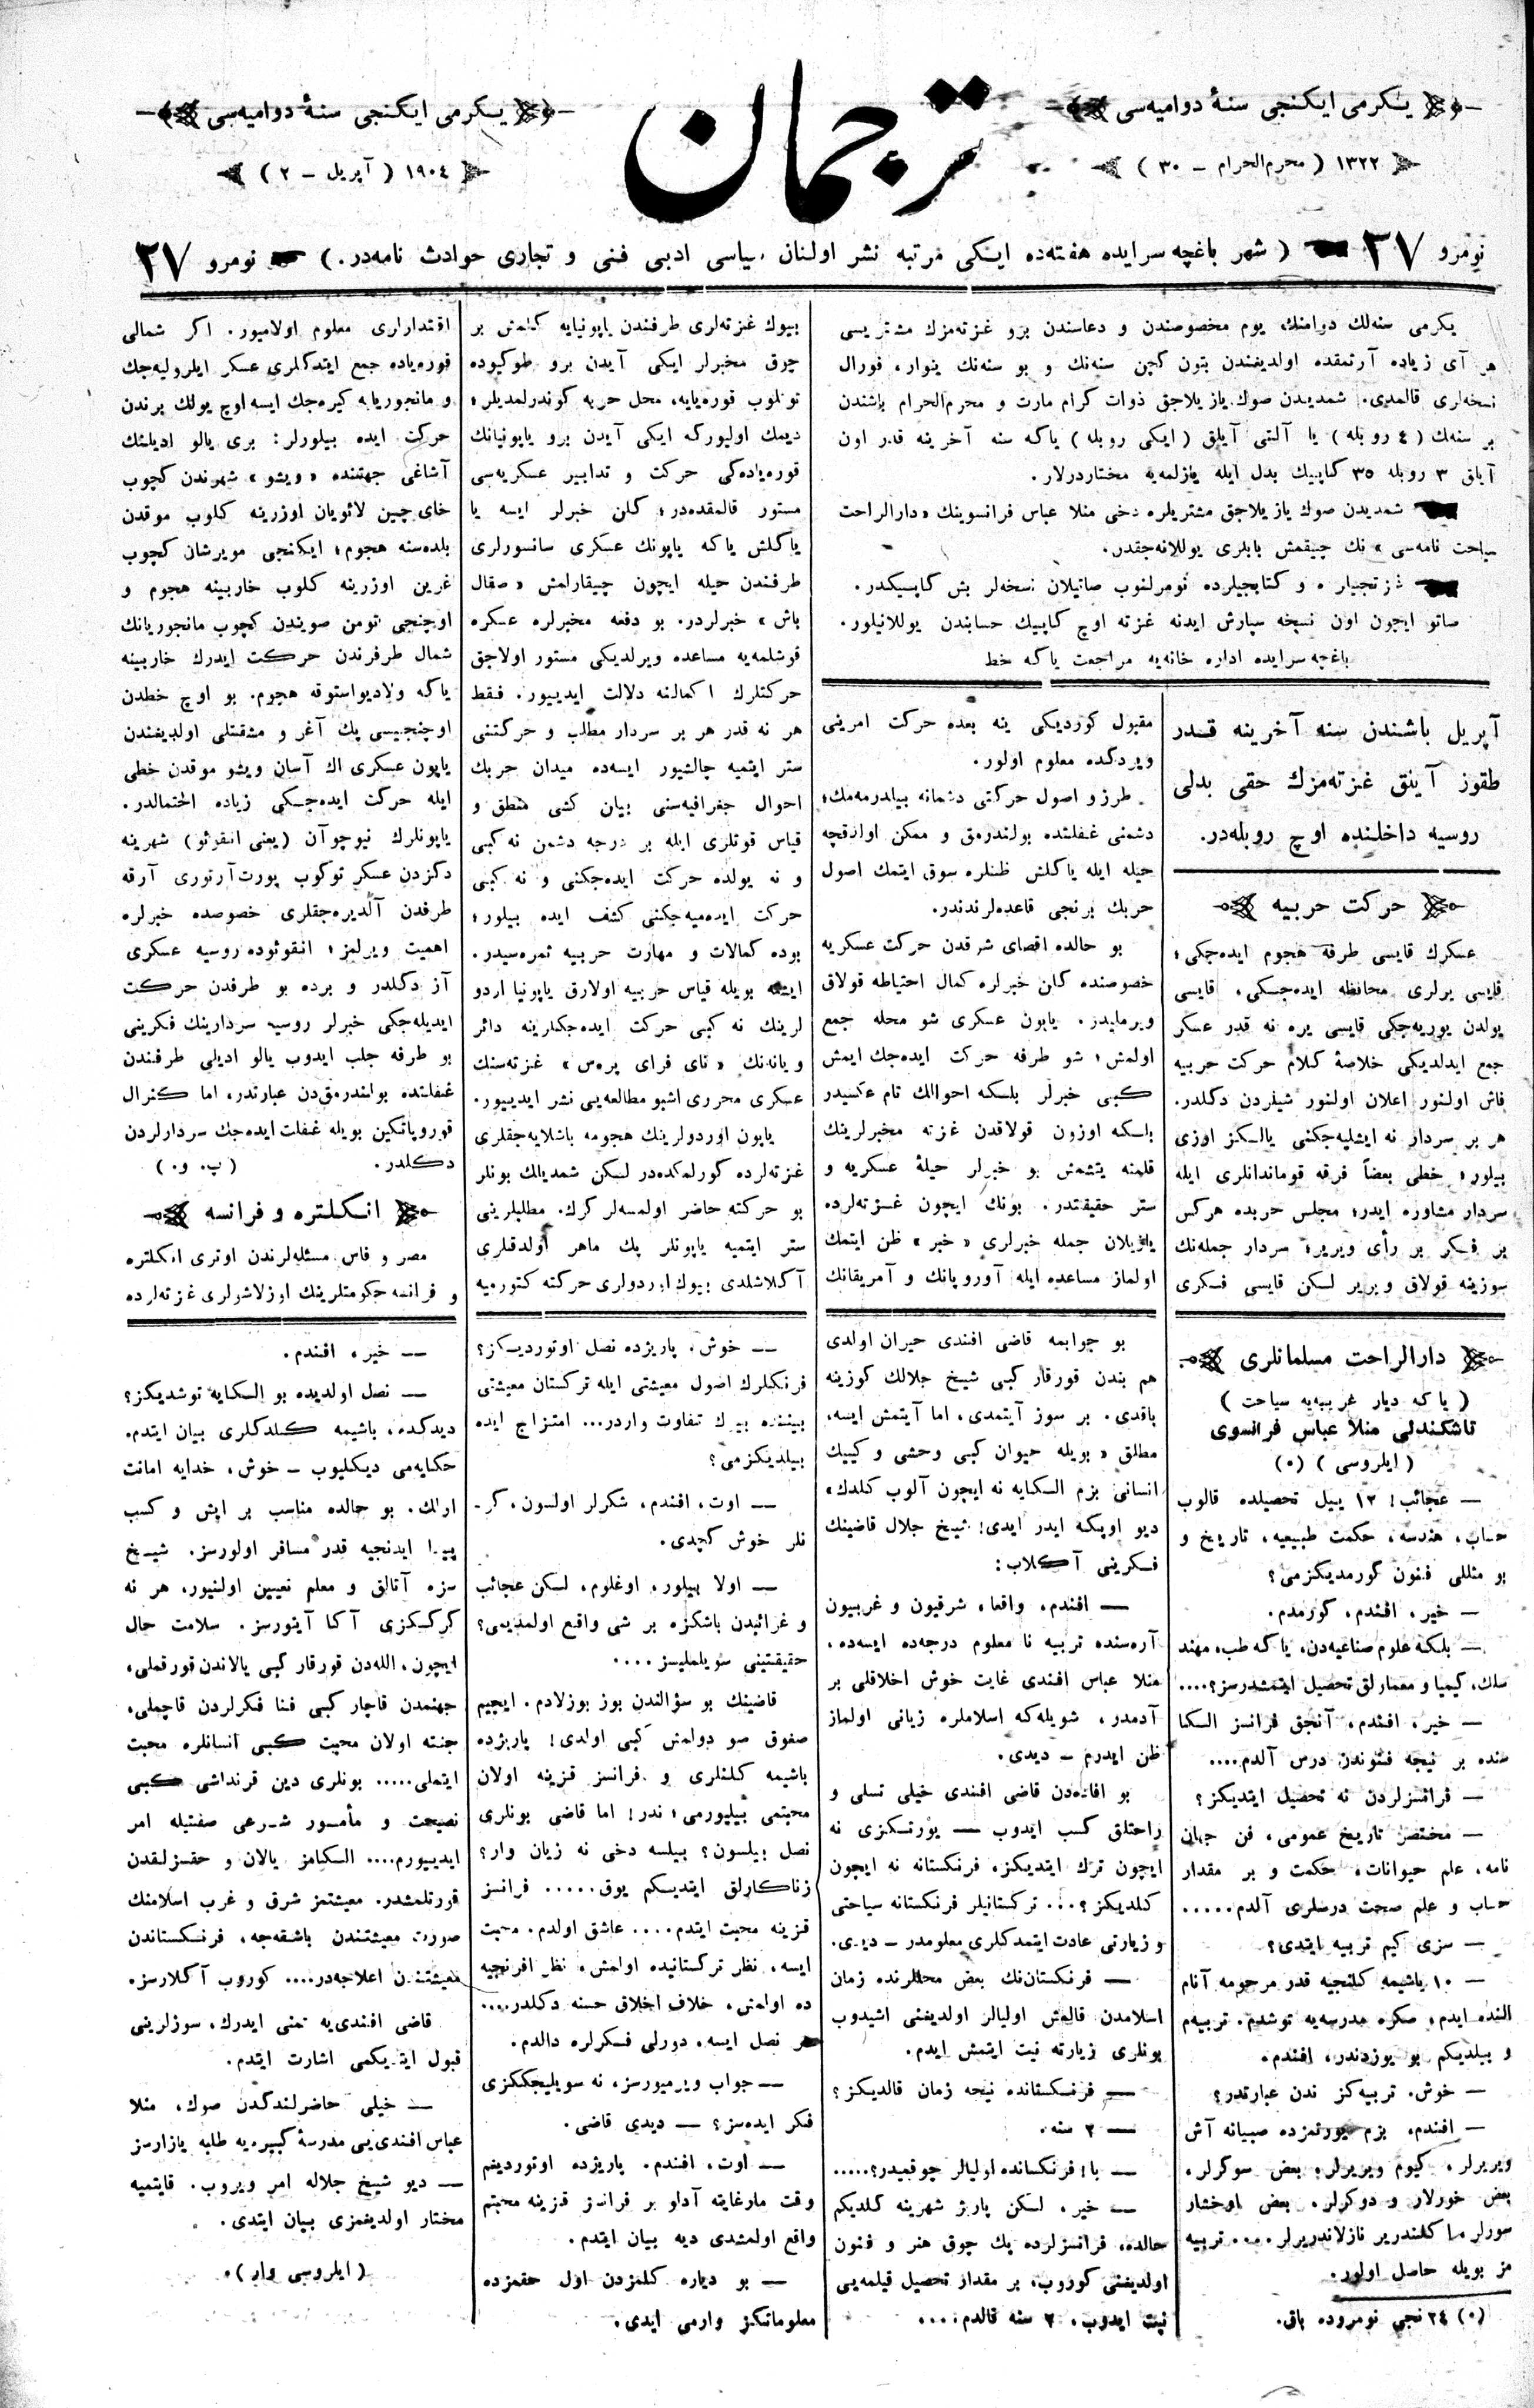 يكرمى ايكنجى سنهٔ دواميه‌سى
١٣٢٢ ( محرم‌الحرام ـ ٣٠ )
ترجمان
يكرمى ايكنجى سنهٔ دواميه‌سى
١٩٠٤ ( آپريل ـ ٢ )
نومرو ٢٧ ( شهر باغچه سرايده هفته‌ده ايكى مرتبه نشر اولنان سياسى ادبى فنى و تجارى حوادث نامه‌در. ) نومرو ٢٧
يكرمى سنه‌لك دوامنك، يوم مخصوصندن و دعاسندن برو غزته‌مزك مشتريسى
هر آى زياده آرتمقده اولديغندن بتون كچن سنه‌نك و بو سنه‌نك ينوار، فورال
نسخه‌لرى قالمدى. شمديدن صوك يازيلاجق ذوات كرام مارت و محرم‌الحرام باشندن
بر سنه‌لك ( ٤ روبله ) يا آلتى آيلق ( ايكى روبله ) ياكه سنه آخرينه قدر اون
آيلق ٣ روبله ٣٥ كاپيك بدل ايله يازلمه‌يه مختاردرلار.
شمديدن صوك يازيلاجق مشتريلره دخى منلا عباس فرانسوينك « دارالراحت
سياحت نامه‌سى » نك چيقمش بابلرى يوللانه‌جقدر.
و كتابجيلرده نومرلنوب صاتيلان نسخه‌لر بش كاپيكدر.
صاتو ايچون اون نسخه سپارش ايدنه غزته اوچ كاپيك حسابندن يوللانيلور.
باغچه سرايده اداره خانه‌يه مراجعت ياكه خط
آپريل باشندن سنه آخرينه قدر
طقوز آيلق غزته‌مزك حقى بدلى
روسيه داخلنده اوچ روبله‌در.
حركت حربيه
عسكرك قايسى طرفه هجوم ايده‌جكى؛
قايسى يرلرى محافظه ايده‌جكى، قايسى
يولدن يوريه‌جكى قايسى يره نه قدر عسكر
جمع ايدلديكى خلاصهٔ كلام حركت حربيه
فاش اولنور اعلان اولنور شيلردن دكلدر.
هر بر سردار نه ايشليه‌جكنى يالكز اوزى
بيلور؛ خطى بعضاً فرقه قوماندانلرى ايله
سردار مشاوره ايدر؛ مجلس حربده هركس
بر فكر بر رأى ويرير؛ سردار جمله‌نك
سوزينه قولاق ويرير لكن قايسى فكرى
مقبول كورديكى ينه بعده حركت امرينى
ويردكده معلوم اولور.
طرز و اصول حركتى دشمانه بيلدرمه‌مك؛
دشمنى غفلتده بولندرمق و ممكن اولدقچه
حيله ايله ياكلش ظنلره سوق ايتمك اصول
حربك برنجى قاعده‌لرندندر.
بو حالده اقصاى شرقدن حركت عسكريه
خصوصنده كلن خبرلره كمال احتياطه قولاق
ويرمليدر. ياپون عسكرى شو محله جمع
اولمش؛ شو طرفه حركت ايده‌جك ايمش
كبى خبرلر بلكه احوالك تام عكسيدر
بلكه اوزون قولاقدن غزته مخبرلرينك
قلمنه يتشمش بو خبرلر حيلهٔ عسكريه و
ستر حقيقتدر. بونك ايچون غزته‌لرده
يازيلان جمله خبرلرى « خبر » ظن ايتمك
اولماز مساعده ايله آوروپانك و آمريقانك
بيوك غزته‌لرى طرفندن ياپونيايه كلمش بر
چوق مخبرلر ايكى آيدن برو طوكيوده
توتلوب قوره‌يايه، محل حربه كوندرلمديلر؛
ديمك اوليوركه ايكى آيدن برو ياپونيانك
قوره‌ياده‌كى حركت و تدابير عسكريه‌سى
مستور قالمقده‌در؛ كلن خبرلر ايسه يا
ياكلش ياكه ياپونك عسكرى سانسورلرى
طرفندن حيله ايچون چيقارلمش « صقال
باش » خبرلردر. بو دفعه مخبرلره عسكره
قوشلمه‌يه مساعده ويرلديكى مستور اولاجق
حركتلرك اكمالنه دلالت ايدييور. فقط
هر نه قدر هر بر سردار مطلب و حركتنى
ستر ايتميه چالشيور ايسه‌ده ميدان حربك
احوال جغرافيه‌سنى بيلن كشى منطق و
قياس قوتلرى ايله بر درجه دشمن نه كبى
و نه يولده حركت ايده‌جكنى و نه كبى
حركت ايده‌ميه‌جكنى كشف ايده بيلور؛
بوده كمالات و مهارت حربيه ثمره‌سيدر.
ايشته بويله قياس حربيه اولارق ياپونيا اردو
لرينك نه كبى حركت ايده‌جكلرينه دائر
ويانانك « ناى فراى پره‌س » غزته‌سنك
عسكرى محررى اشبو مطالعه‌يى نشر ايدييور.
ياپون اوردولرينك هجومه باشلايه‌جقلرى
غزته‌لرده كورلمكده‌در لكن شمديلك بونلر
بو حركته حاضر اولمسه‌لر كرك. مطلبلرينى
ستر ايتميه ياپونلر پك ماهر اولدقلرى
آكلاشلدى بيوك اوردولرى حركته كتورميه
اقتدارلرى معلوم اولاميور. اكر شمالى
قوره‌ياده جمع ايتدكلرى عسكر ايلروليه‌جك
و مانجوريايه كيره‌جك ايسه اوچ يولك برندن
حركت ايده بيلورلر: برى يالو اديلينك
آشاغى جهتنده « ويشو » شهرندن كچوب
خاى چين لائويان اوزرينه كلوب موقدن
بلده‌سنه هجوم؛ ايكنجى مويرشان كچوب
غرين اوزرينه كلوب خاربينه هجوم و
اوچنجى تومن صويندن كچوب مانجوريانك
شمال طرفرندن حركت ايدرك خاربينه
ياكه ولاديواستوقه هجوم. بو اوچ خطدن
اوچنجيسى پك آغر و مشقتلى اولديغندن
ياپون عسكرى اك آسان ويشو موقدن خطى
ايله حركت ايده‌جكى زياده احتمالدر.
ياپونلرك نيوچوآن (يعنى انقوئو) شهرينه
دكزدن عسكر توكوب پورت آرتورى آرقه
طرفدن آلديره‌جقلرى خصوصده خبرلره
اهميت ويرلمز؛ انقوئوده روسيه عسكرى
آز دكلدر و برده بو طرفدن حركت
ايديله‌جكى خبرلر روسيه سردارينك فكرينى
بو طرفه جلب ايدوب يالو اديلى طرفندن
غفلتده بولندرمق‌دن عبارتدر، اما كنرال
قوروپاتكين بويله غفلت ايده‌جك سردارلردن
دكلدر. ( پ. و. )
انكلتره و فرانسه
مصر و فاس مسئله‌لرندن اوترى انكلتره
و فرانسه حكومتلرينك اوزلاشولرى غزته‌لرده
دارالراحت مسلمانلرى
( ياكه ديار غربيه‌يه سياحت )
تاشكندلى منلا عباس فرانسوى
( ايلروسى ) (٠)
— عجائب! ١٢ ييل تحصيلده قالوب
حساب، هندسه، حكمت طبيعيه، تاريخ و
بو مثللى فنون كورمديكزمى؟
— خير، افندم، كورمدم.
— بلكه علوم صناعيه‌دن، ياكه طب، مهند
سلك، كيميا و معمارلق تحصيل ايتمشدرسز؟....
— خير، افندم، آنجق فرانسز الكا
سنده بر نيچه فنوندن درس آلدم....
— فرانسزلردن نه تحصيل ايتديكز؟
— مختصر تاريخ عمومى، فن جهان
نامه، علم حيوانات، حكمت و بر مقدار
حساب و علم صحت درسلرى آلدم.....
— سزى كيم تربيه ايتدى؟
— ١٠ ياشيمه كلنجيه قدر مرحومه آنام
النده ايدم، صكره مدرسه‌يه توشدم. تربيه‌م
و بيلديكم بو يوزدندر، افندم.
— خوش. تربيه‌كز ندن عبارتدر؟
— افندم، بزم يورتمزده صبيانه آش
ويريرلر، كيوم ويريرلر، بعض سوكرلر،
بعض خورلار و دوكرلر. بعض اوخشار
سورلر كلندرير نازلاندريرلر.... تربيه
مز بويله حاصل اولور.
(٠) ٢٤ نجى نومروده باق.
بو جوابمه قاضى افندى حيران اولدى
هم بندن قورقار كبى شيخ جلالك كوزينه
باقدى. بر سوز آيتمدى، اما آيتمش ايسه،
مطلق « بويله حيوان كبى وحشى و كييك
انسانى بزم الكايه نه ايچون آلوب كلدك»
ديو اوپكه ايدر ايدى! شيخ جلال قاضينك
فكرينى آكلاب:
— افندم، واقعا، شرقيون و غربيون
آره‌سنده تربيه نا معلوم درجه‌ده ايسه‌ده،
منلا عباس افندى غايت خوش اخلاقلى بر
آدمدر، شويله‌كه اسلاملره زيانى اولماز
ظن ايدرم ـ ديدى.
بو افاده‌دن قاضى افندى خيلى تسلى و
راحتلق كسب ايدوب — يورتكزى نه
ايچون ترك ايتديكز، فرنكستانه نه ايچون
كلديكز؟... تركستانيلر فرنكستانه سياحتى
و زيارتى عادت ايتمدكلرى معلومدر ـ ديدى.
— فرنكستان‌نك بعض محللرنده زمان
اسلامدن قالمش اوليالر اولديغنى اشيدوب
بونلرى زيارته نيت ايتمش ايدم.
— فرنكستانده نيچه زمان قالديكز؟
— ٢ سنه.
— با! فرنكستانده اوليالر چوقميدر؟.....
— خير، لكن پاريژ شهرينه كلديكم
حالده، فرانسزلرده پك چوق هنر و فنون
اولديغنى كوروب، بر مقدار تحصيل قيلمه‌يى
نيت ايدوب، ٢ سنه قالدم....
— خوش، پاريزده نصل اوتورديكز؟
فرنكلرك اصول معيشتى ايله تركستان معيشتى
بيننده بيوك تفاوت واردر... امتزاج ايده
بيلديكزمى؟
— اوت، افندم، شكرلر اولسون، كو-
نلر خوش كچدى.
— اولا بيلور، اوغلوم، لكن عجائب
و غرائبدن باشكزه بر شى واقع اولمديمى؟
حقيقتينى سويلمليسز....
قاضينك بو سؤالندن بوز بوزلادم. ايچيم
صغوق صو دولمش كبى اولدى! پاريزده
باشيمه كلنلرى و فرانسز قزينه اولان
محبتمى بيليورمى؛ ندر! اما قاضى بونلرى
نصل بيلسون؟ بيلسه دخى نه زيان وار؟
زناكارلق ايتديكم يوق..... فرانسز
قزينه محبت ايتدم.... عاشق اولدم. محبت
ايسه، نظر تركستانيده اولمش، نظر افرنجيه
ده اولمش، خلاف اخلاق حسنه دكلدر....
هر نصل ايسه. دورلى فكرلره دالدم.
— جواب ويرميورسز، نه سويليجككزى
فكر ايده‌سز؟ — ديدى قاضى.
— اوت، افندم. پاريزده اوتورديغم
وقت مارغايته آدلو بر فرانسز قزينه محبتم
واقع اولمشدى ديه بيان ايتدم.
— بو دياره كلمزدن اول حقمزده
معلوماتكز وارمى ايدى.
— خير، افندم.
— نصل اولديده بو الكايه توشديكز؟
ديدكده، باشيمه كلدكلرى بيان ايتدم.
حكايه‌مى ديكليوب ـ خوش، خدايه امانت
اولك. بو حالده مناسب بر ايش و كسب
پيدا ايدنجيه قدر مسافر اولورسز. شيخ
سزه آتالق و معلم تعيين اولنيور، هر نه
كركسكزى آكا آيتورسز. سلامت حال
ايچون، الله‌دن قورقار كبى يالاندن قورقملى،
جهنمدن قاچار كبى فنا فكرلردن قاچملى،
جنته اولان محبت كبى انسانلره محبت
ايتملى..... بونلرى دين قرنداشى كبى
نصيحت و مأمور شرعى صفتيله امر
ايدييورم.... الكامز يالان و حقسزلقدن
قورتلمشدر. معيشتمز شرق و غرب اسلامنك
صورت معيشتندن باشقه‌جه، فرنكستاندن
معيشتندن اعلاجه‌در.... كوروب آكلارسز.
قاضى افندى‌يه تمنى ايدرك، سوزلرينى
قبول ايتديكمى اشارت ايتدم.
— خيلى حاضرلندكدن صوك، منلا
عباس افندى‌يى مدرسهٔ كبيره‌يه طلبه يازارسز
— ديو شيخ جلاله امر ويروب. قايتميه
مختار اولديغمزى بيان ايتدى.
( ايلروسى وار ).